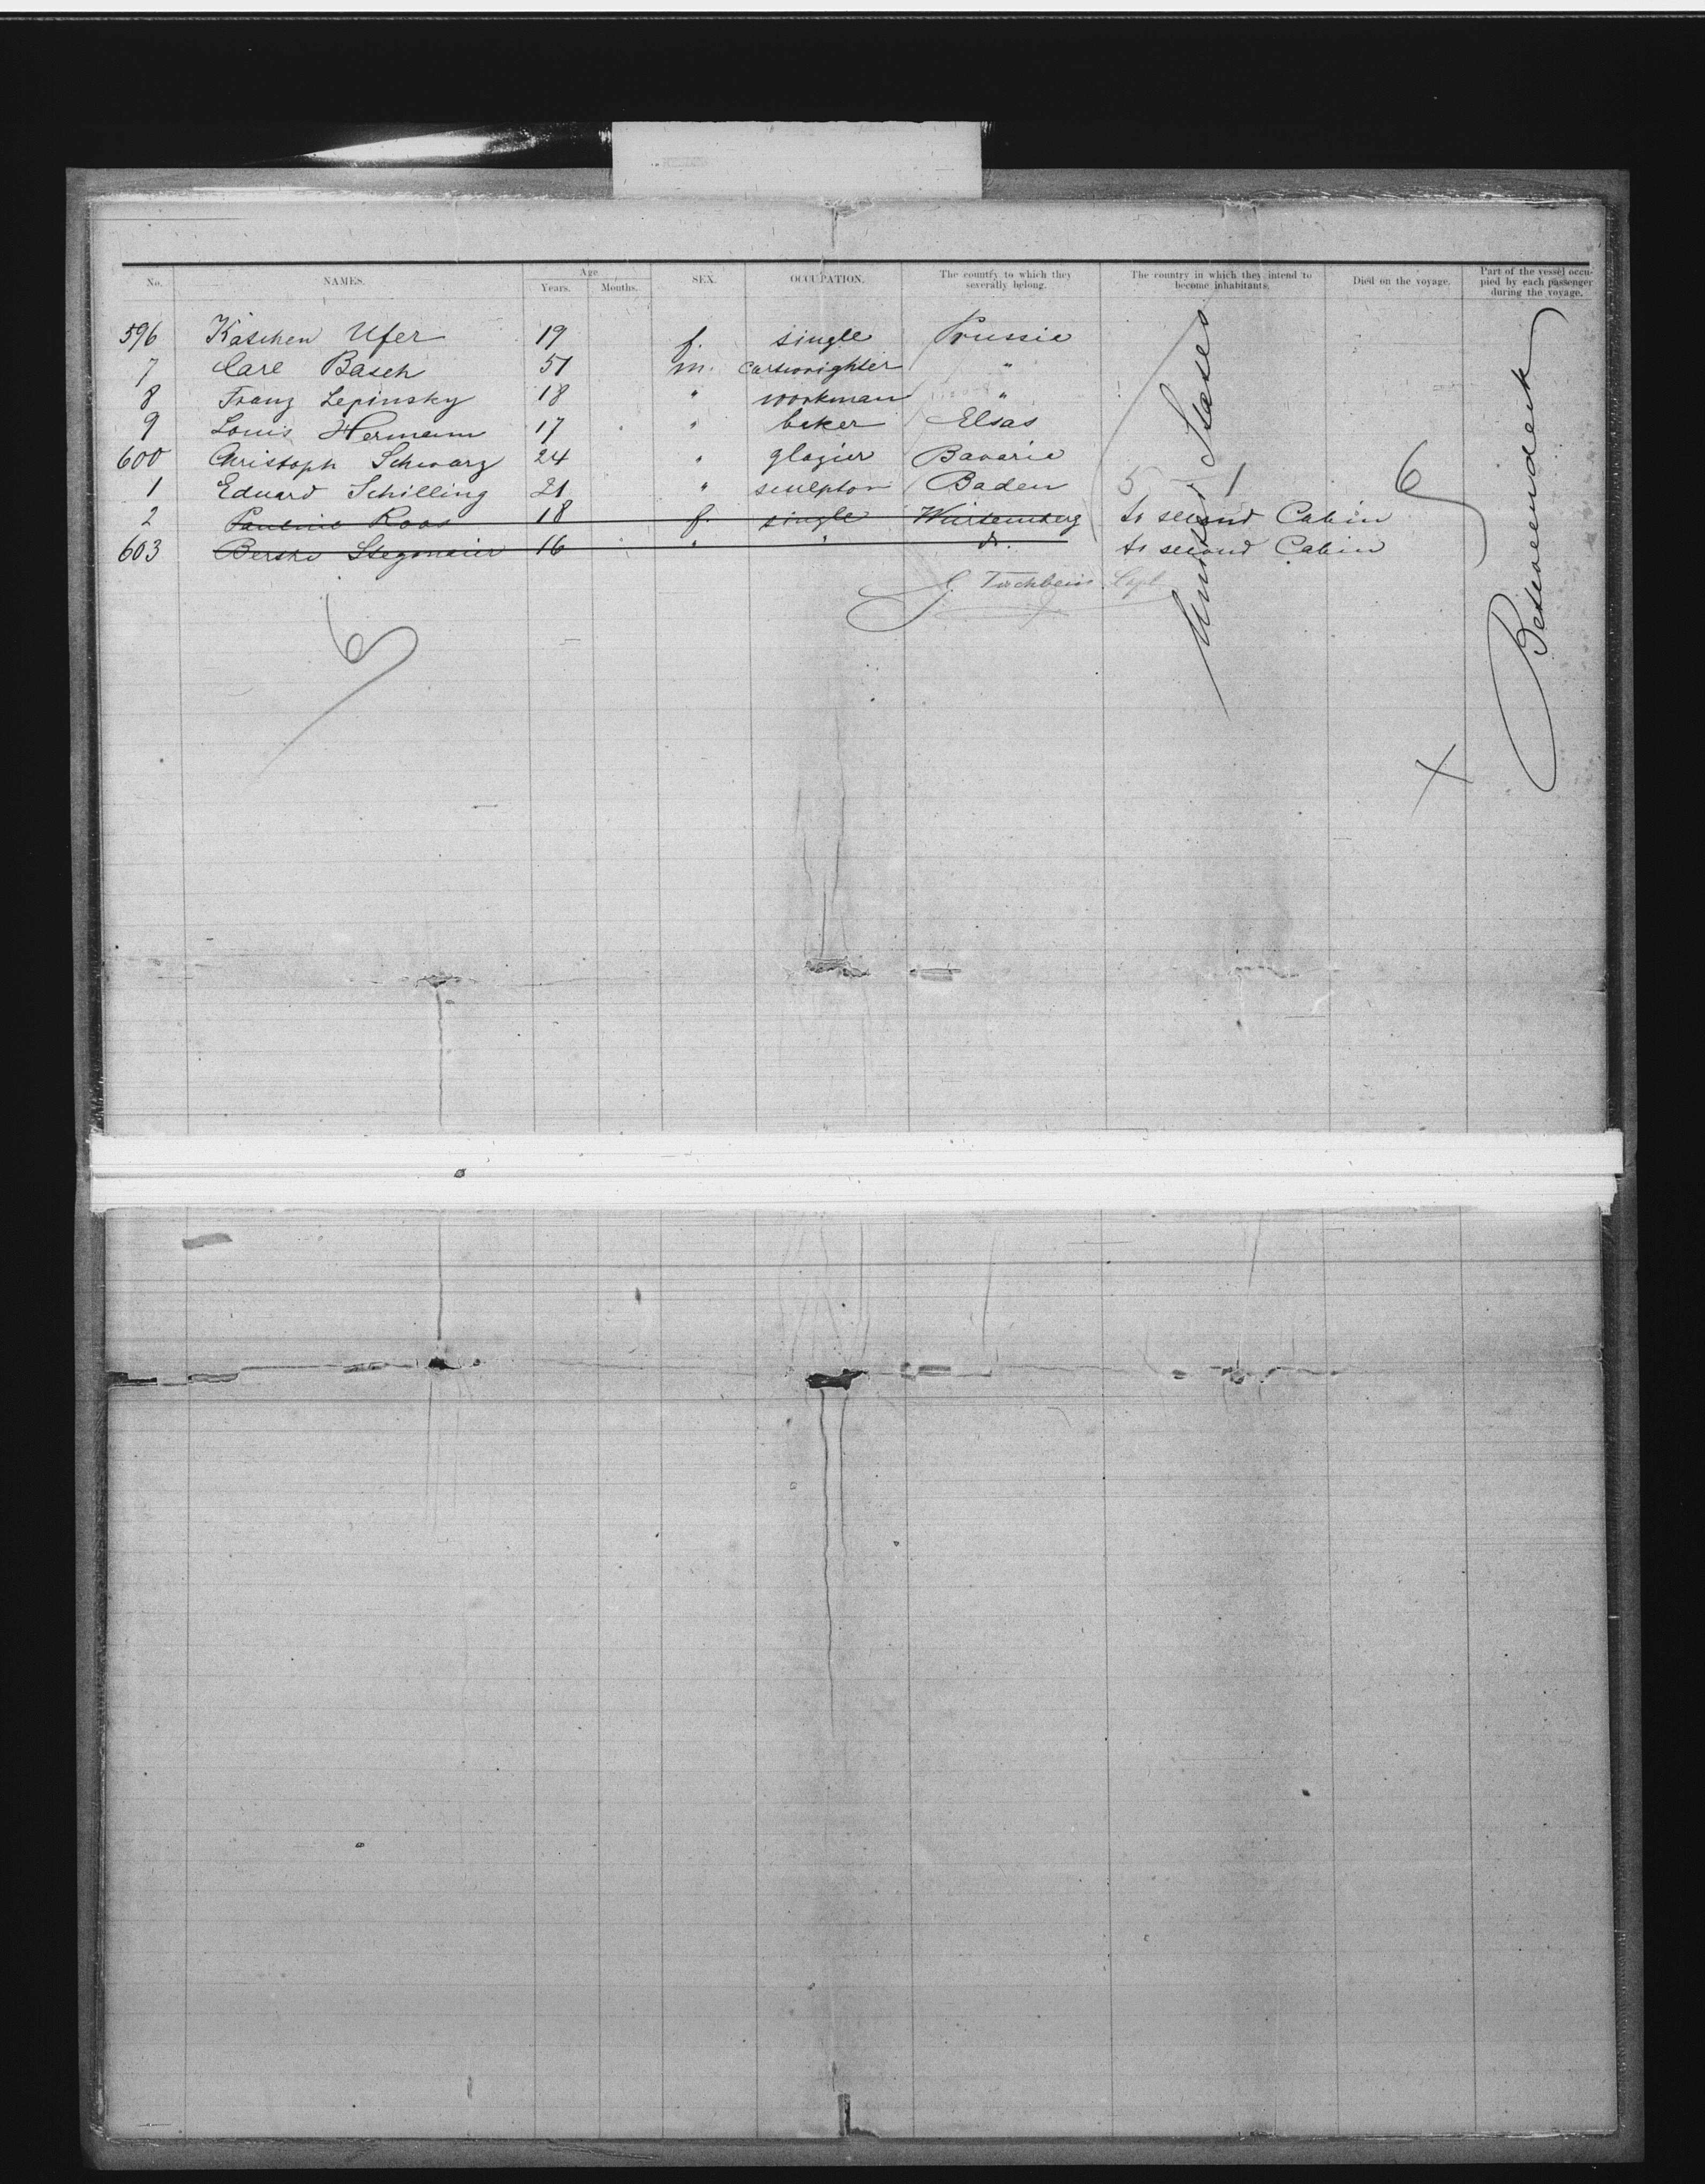 No. NAMES. Age Years. Months. SEX. OCCUPATION. The country to which they severally belong. The country in which they intend to become inhabitants. Died on the voyage. Part of the vessel occupied by each passenger during the voyage.
596 Käschen Ufer 19 f. single Prussia
7 Carl Basch 51 m. cartwrighter "
8 Franz Lepinsky 18 " workman "
9 Louis Hermann 17 " baker Elsas
600 Christoph Schwarz 24 " glazier Bavaria
1 Eduard Schilling 21 " sculptor Baden 5 1
2 Pauline Roos 18 f. single Würtemberg to second Cabin
603 Stegmaier 16 " " do. to second Cabin
Capt
United States
6
Betweendeck
6